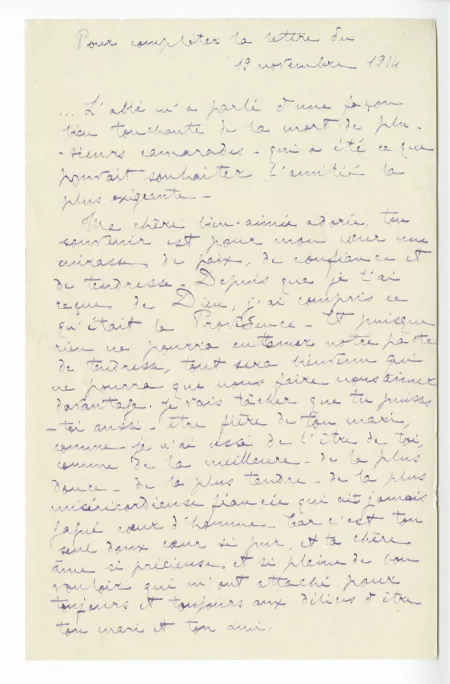 Pour compléter la lettre du
19 novembre 1914
... L'abbé m'a parlé d'une façon
bien touchante de la mort de plu-
-sieurs camarades - qui a été ce que
pouvait souhaiter l'amitié la
plus exigeante -
Ma chère bien-aimée adorée, ton
souvenir est pour mon cœur une
cuirasse de paix, de confiance et
de tendresse - Depuis que je t'ai
reçue de Dieu, j'ai compris ce
qu'était la Providence - Et puisque
rien ne pourra entamer notre pacte
de tendresse, tout sera bienvenu qui
ne pourra que nous faire nous aimer
davantage. Je vais tâcher que tu puisses
- toi aussi - être fière de ton mari,
comme je n'ai cessé de l'être de toi,
comme de la meilleure - de la plus
douce - de la plus tendre - de la plus
miséricordieuse fiancée qui ait jamais
cœur d'homme - Car c'est ton
seul doux cœur si pur, et ta chère
âme si précieuse et si pleine de bon
vouloir qui m'ont attaché pour
toujours et toujours aux délices d'être
ton mari et ton ami.